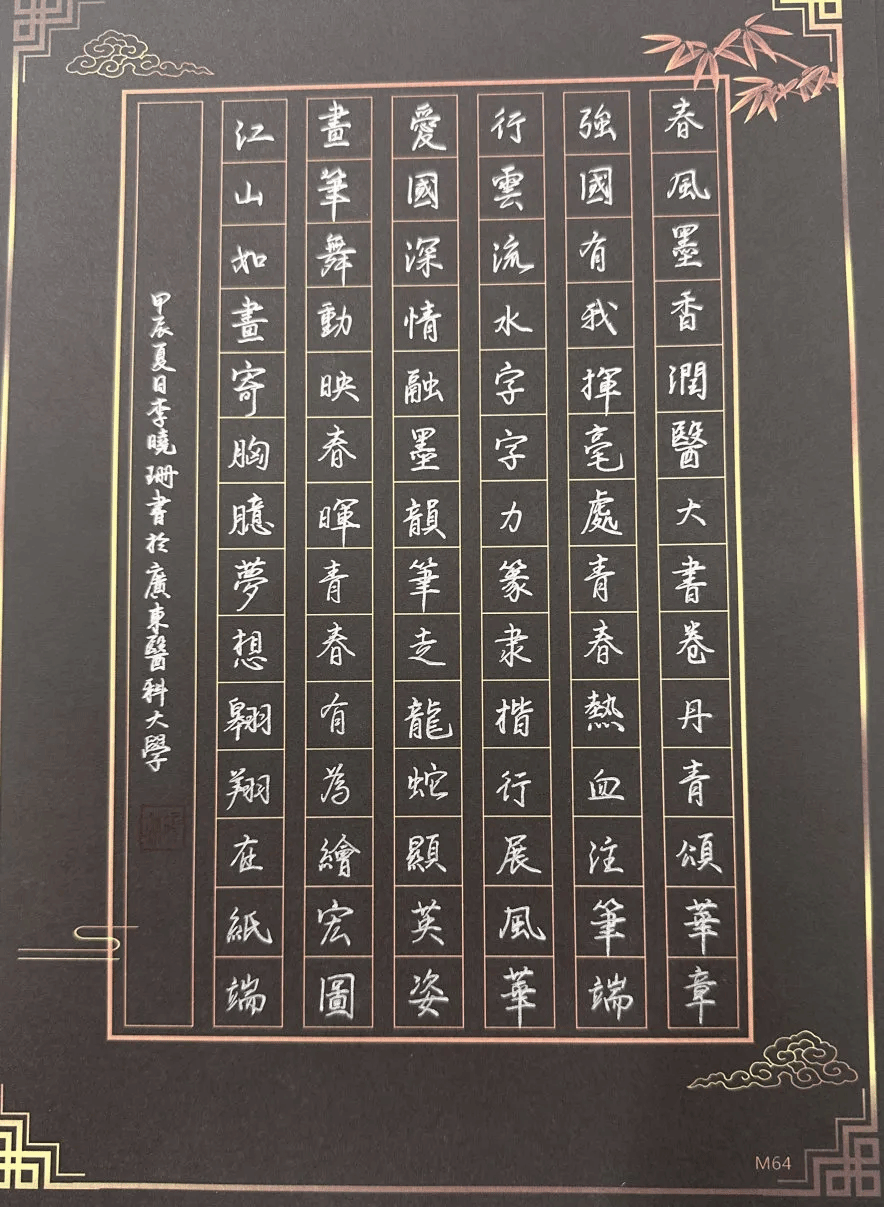 春風墨香潤醫大書卷丹青頌華章
強國有我揮毫處青春熱血注筆端
行雲流水字字力篆隶揩行展風華
愛國深情融墨韻筆走龍蛇顯英姿
畫筆舞動映春暉青春有為繪宏圖
江山如畫寄胸臆夢想翱翔在紙端
甲辰夏日李曉珊書於廣東醫科大學
M64